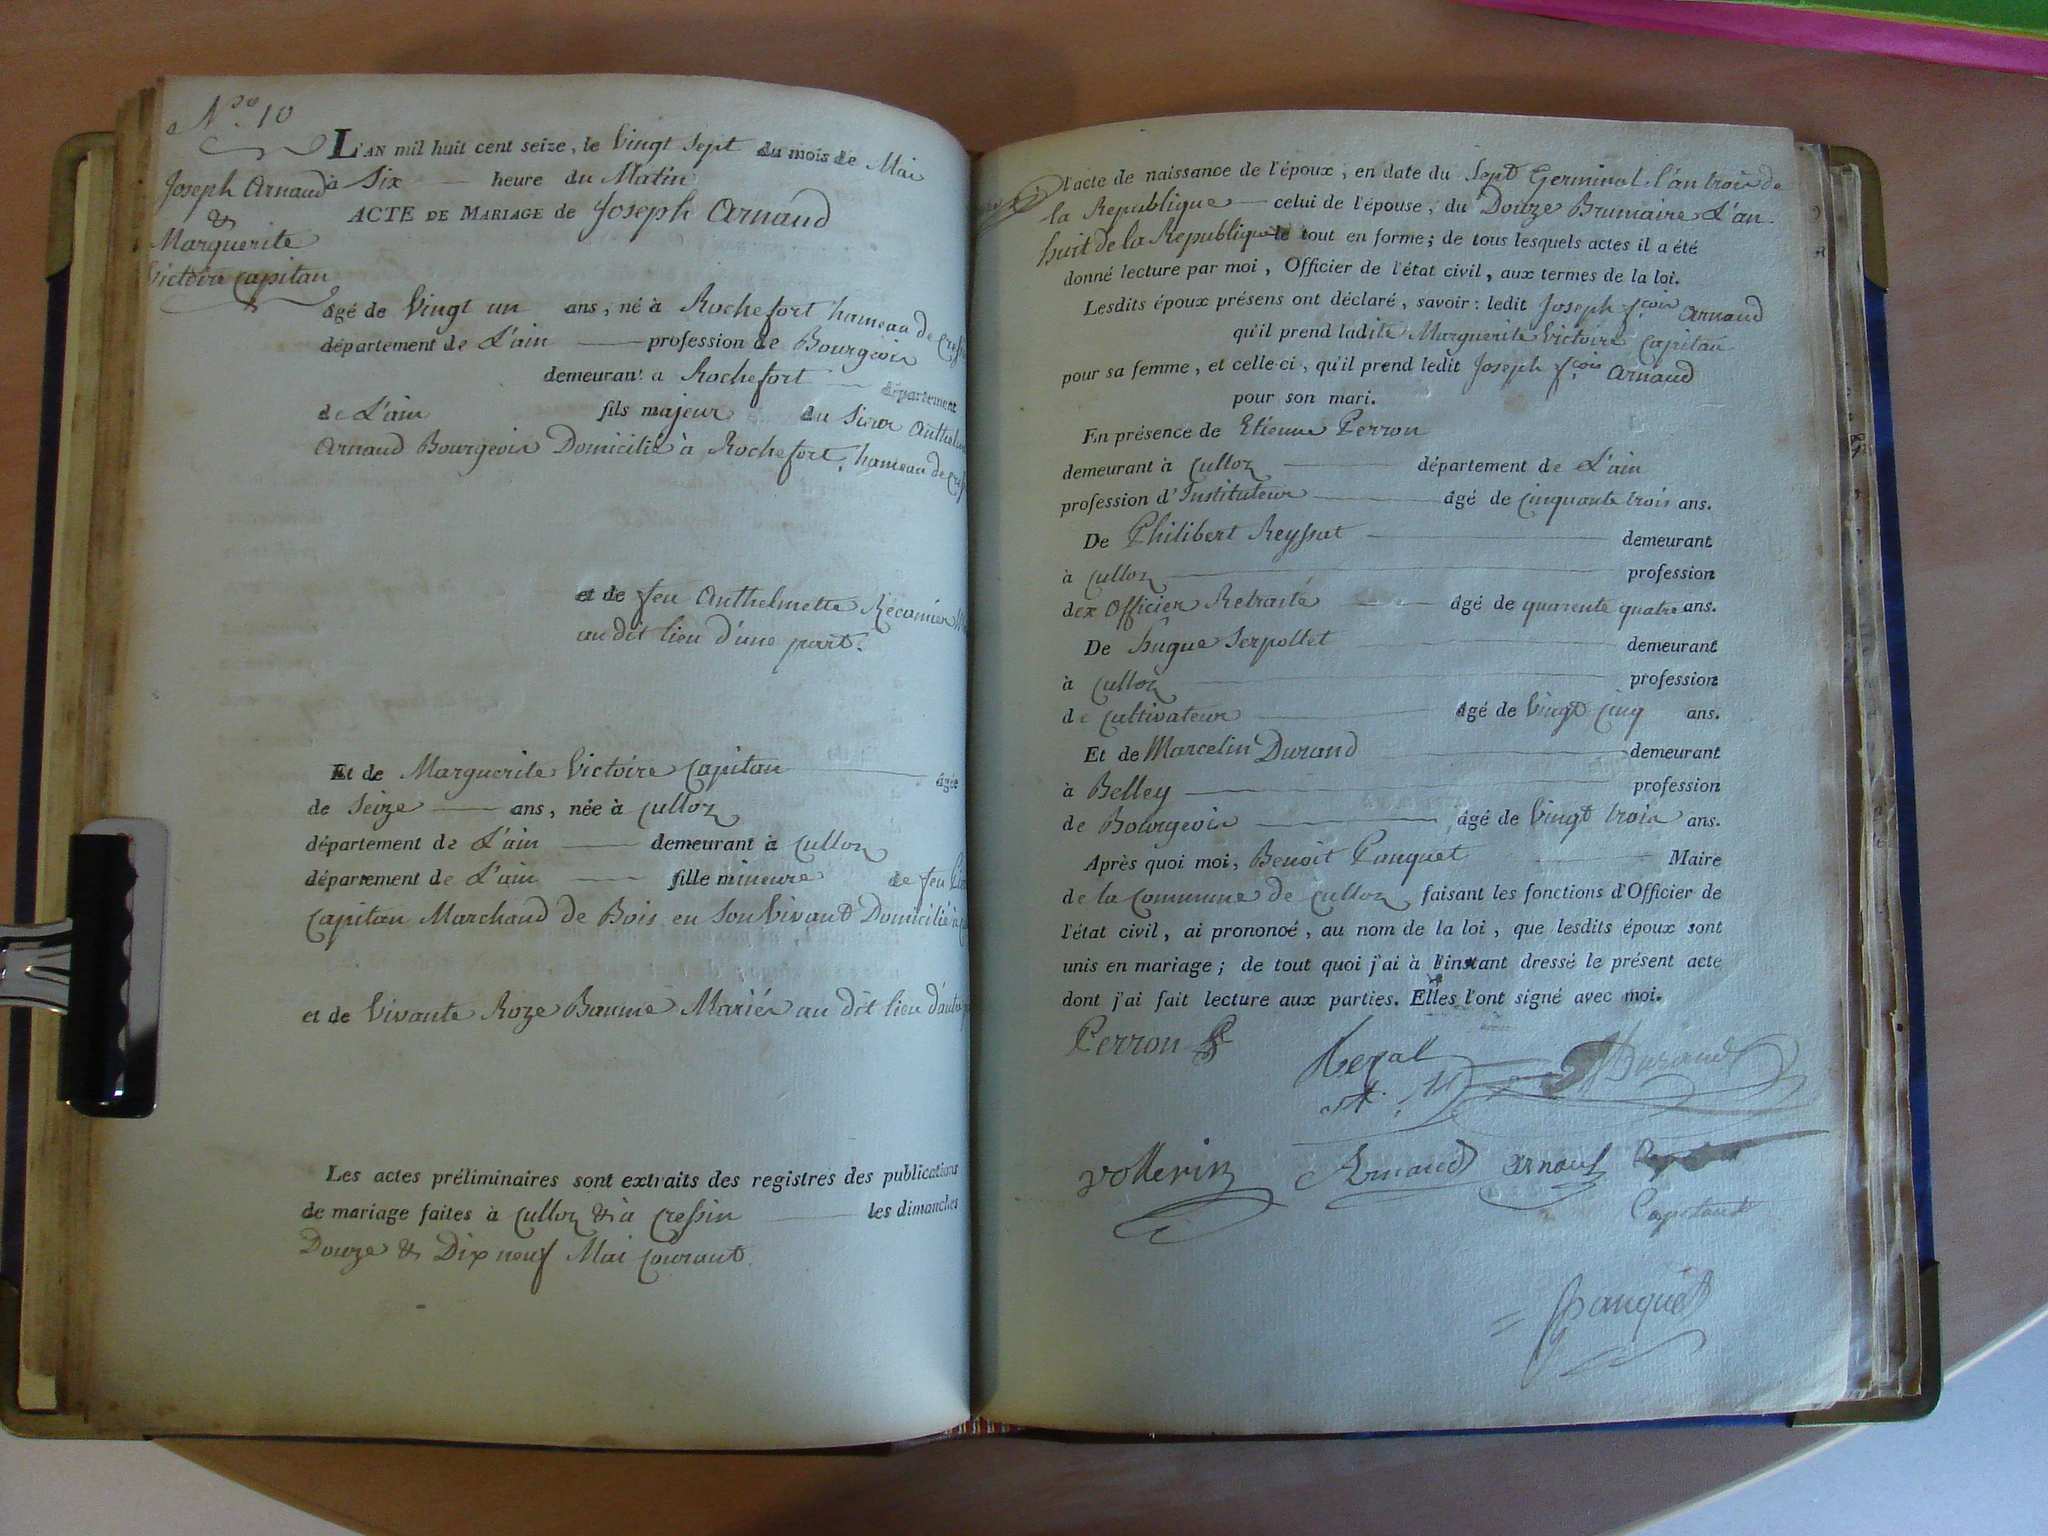 N.ro 10
Joseph Arnaud
&
Marguerite
Victoire Capitan
L'AN mil huit cent seize, le Vingt Sept du mois de Mai
à Six heure du Matin
ACTE DE MARIAGE de Joseph Arnaud
âgé de Vingt un ans, né à Rochefort hameau de
département de L'ain profession de Bourgeois
demeurant a Rochefort département
de L'ain fils majeur du Sieur
Arnaud Bourgeois Domicilié à Rochefort, hameau de
et de feu Anthelmette Récamier
au dit lieu d'une part.
Et de Marguerite Victoire Capitan âgée
de Seize ans, née à Culloz
département de L'ain demeurant à Culloz
département de L'ain fille mineure de feu
Capitan Marchand de Bois en Son Vivant Domicilié à
et de Vivante Roze Baume Mariés au dit lieu
Les actes préliminaires sont extraits des registres des publications
de mariage faites à Culloz & à Cressin les dimanches
Douze & Dix neuf Mai Courant.
l'acte de naissance de l'époux, en date du Sept Germinal l'an trois de
la Republique celui de l'épouse, du Douze Brumaire L'an
huit de la Republique le tout en forme; de tous lesquels actes il a été
donné lecture par moi, Officier de l'état civil, aux termes de la loi.
Lesdits époux présens ont déclaré, savoir: ledit Joseph f.çois Arnaud
qu'il prend ladite Marguerite Victoire Capitan
pour sa femme, et celle-ci, qu'il prend ledit Joseph f.çois Arnaud
pour son mari.
En présence de Etienne Perron
demeurant à Culloz département de L'ain
profession d'Instituteur âgé de Cinquante trois ans.
De Philibert Reyssat demeurant
à Culloz profession
dex Officier Retraité âgé de quarente quatre ans.
De hugue Serpollet demeurant
à Culloz profession
de Cultivateur âgé de Vingt Cinq ans.
Et de Marcelin Durand demeurant
à Belley profession
de Bourgeois âgé de Vingt trois ans.
Après quoi moi, Benoit Panquet Maire
de la Commune de Culloz faisant les fonctions d'Officier de
l'état civil, ai prononcé, au nom de la loi, que lesdits époux sont
unis en mariage; de tout quoi j'ai à l'instant dressé le présent acte
dont j'ai fait lecture aux parties. Elles l'ont signé avec moi.
Perron
Durand
Vollerin Arnaud Arnaud
Capitant
Panquet